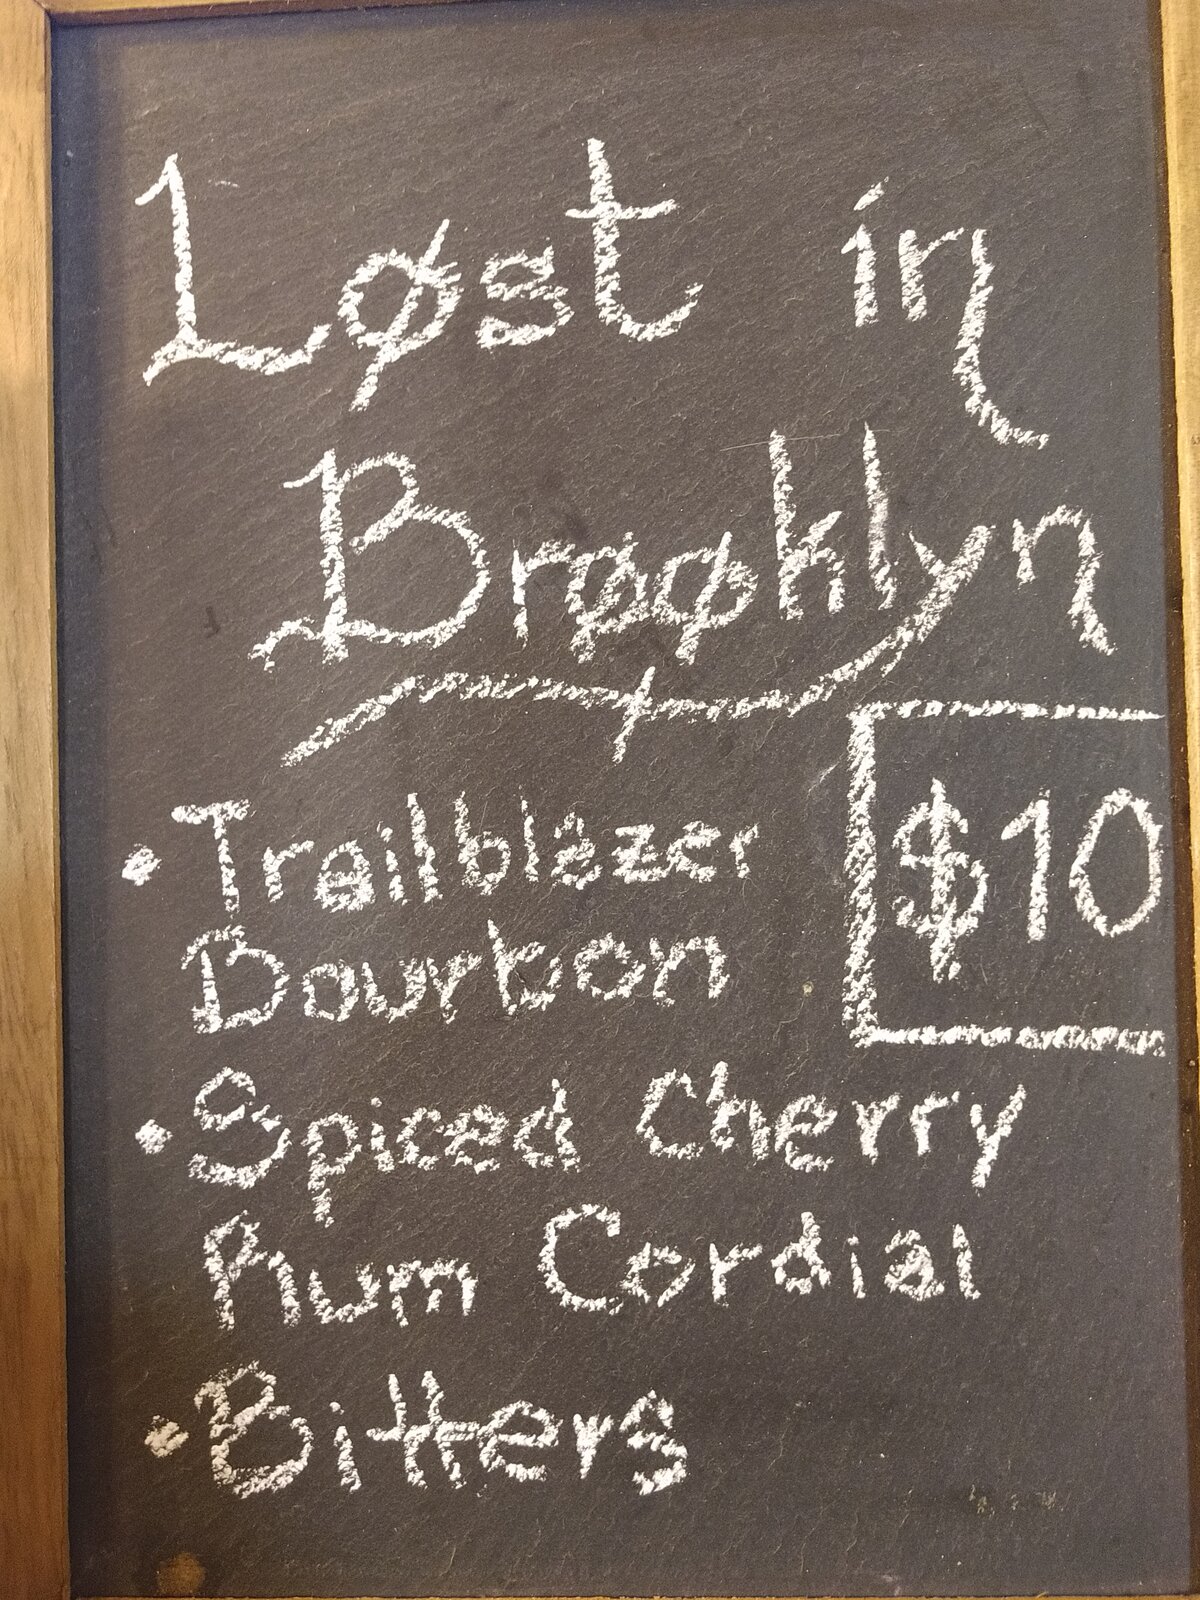 Løst in
Brøøklyn
• Trailblazer
Bourbon
$10
• Spiced Cherry
Rum Cordial
• Bitters